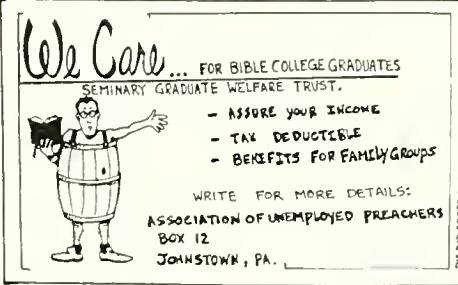 We Care... FOR BIBLE COLLEGE GRADUATES
SEMINARY GRADUATE WELFARE TRUST.
- ASSURE YOUR INCOME
- TAX DEDUCTIBLE
- BENEFITS FOR FAMILY GROUPS
WRITE FOR MORE DETAILS:
ASSOCIATION OF UNEMPLOYED PREACHERS
BOX 12
JOHNSTOWN, PA.